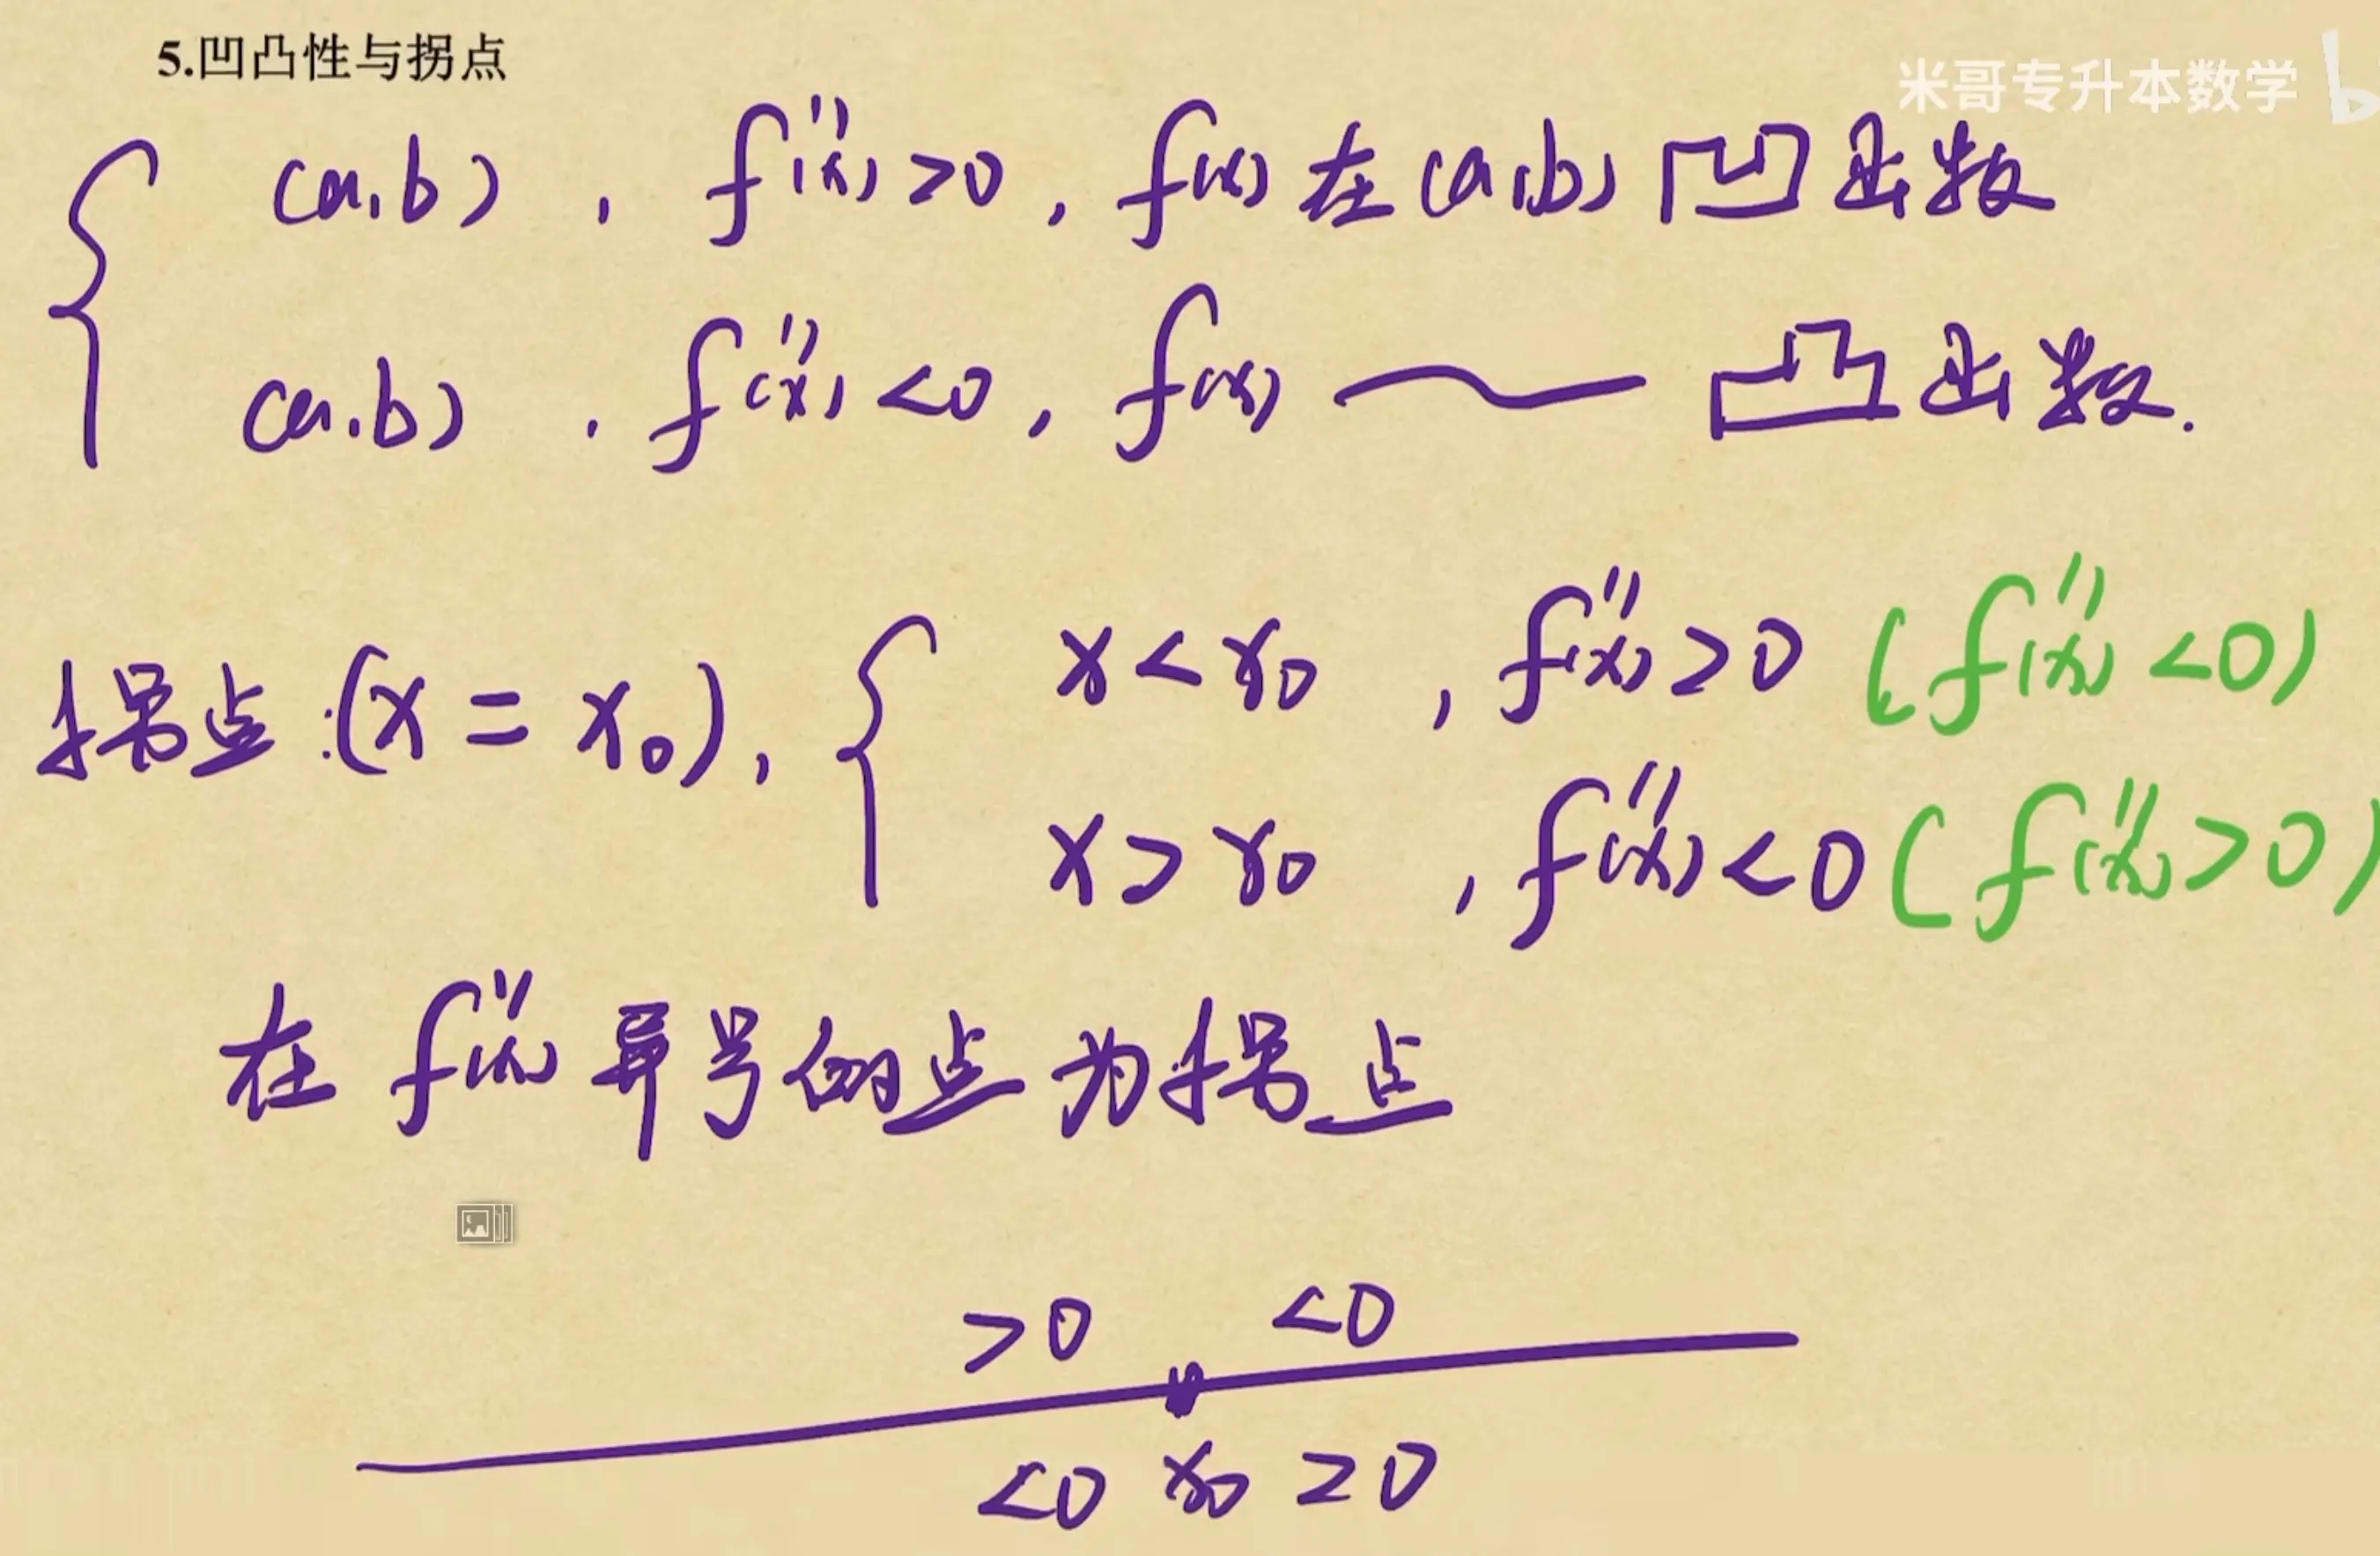 5.凹凸性与拐点
米哥专升本数学 b
(a,b), f''(x)>0, f(x)在(a,b)凹函数
(a,b), f''(x)<0, f(x) ～ 凸函数.
拐点:(x=x₀), { x<x₀, f''(x)>0 (f''(x)<0)
x>x₀, f''(x)<0 (f''(x)>0)
在 f''(x) 异号的点为拐点
>0 <0
<0 x₀ >0